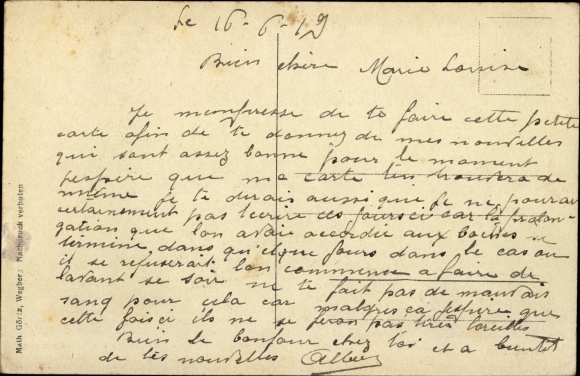 Le 16-6-19
Bien chère Marie Louise
Je m'empresse de te faire cette petite
carte afin de te donner de mes nouvelles
qui sont assez bonne pour le moment
j'espère que ma carte ten trouvera de
même je te dirais aussi que je ne pourrai
certainement pas t'écrire ces jours ci car la prolon-
gation que l'on avait accordée aux boches se
termine dans quelque jours dans le cas ou
il se refuserait l'on commence a faire de
lavant se soir ne te fait pas de mauvais
sang pour cela car malgres ca j'espere que
cette fois ci ils ne se feron pas tirés loreilles
Bien le bonjour chez toi et a bientôt
de tes nouvelles
Math. Görtz, Wegberg: Nachdruck verboten